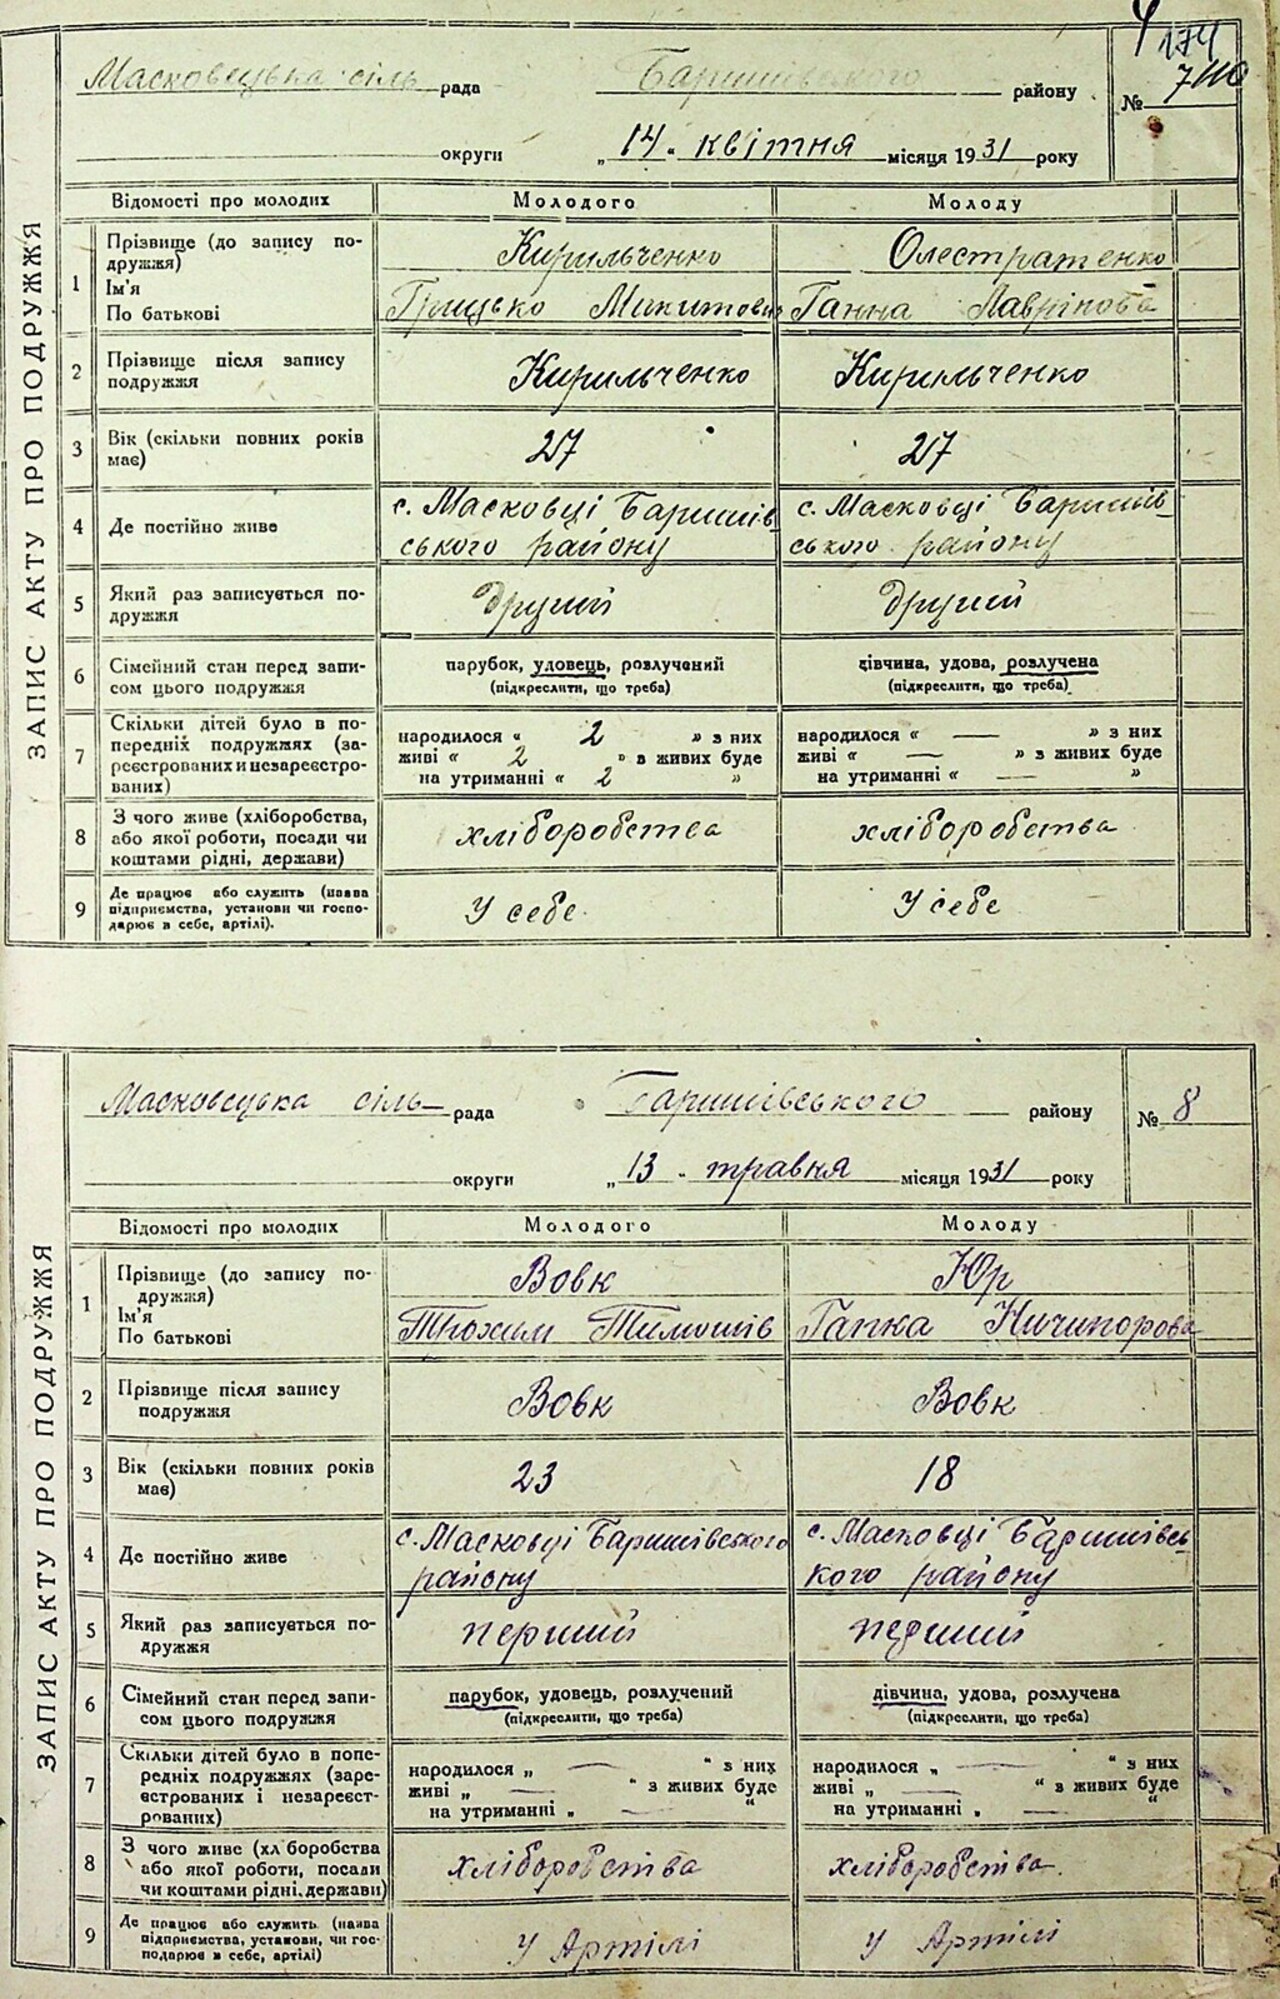 174
Масковецька сіль рада Баришівського району № 7
округи „14" квітня місяця 1931 року
ЗАПИС АКТУ ПРО ПОДРУЖЖЯ
Відомості про молодих Молодого Молоду
1 Прізвище (до запису по-
дружжя) Кирильченко Олестратенко
Ім'я
По батькові Грицько Микитович Ганна Лаврінова
2 Прізвище після запису
подружжя Кирильченко Кирильченко
3 Вік (скільки повних років
має) 27 27
4 Де постійно живе с. Масковці Баришів- с. Масковці Баришів-
ського району ського району
5 Який раз записується по-
дружжя Другий Другий
6 Сімейний стан перед запи- парубок, удовець, розлучений дівчина, удова, розлучена
сом цього подружжя (підкреслити, що треба) (підкреслити, що треба)
7 Скільки дітей було в по-
передніх подружжях (за- народилося « 2 » з них народилося « — » з них
реєстрованих и незареєстро- живі « 2 » в живих буде живі « — » з живих буде
ваних) на утриманні « 2 » на утриманні « — »
8 З чого живе (хліборобства,
або якої роботи, посади чи хліборобства хліборобства
коштами рідні, держави)
9 Де працює або служить (назва
підприємства, установи чи госпо- У себе У себе
дарює в себе, артілі).
Масковецька сіль- рада Баришівського району № 8
округи „13" травня місяця 1931 року
ЗАПИС АКТУ ПРО ПОДРУЖЖЯ
Відомості про молодих Молодого Молоду
1 Прізвище (до запису по-
дружжя) Вовк Юр
Ім'я
По батькові Трохим Тимошів Гапка Ничипорова
2 Прізвище після запису
подружжя Вовк Вовк
3 Вік (скільки повних років
має) 23 18
4 Де постійно живе с. Масковці Баришівського с. Масковці Баришівсь-
району кого району
5 Який раз записується по-
дружжя перший перший
6 Сімейний стан перед запи- парубок, удовець, розлучений дівчина, удова, розлучена
сом цього подружжя (підкреслити, що треба) (підкреслити, що треба)
7 Скільки дітей було в попе-
редніх подружжях (заре- народилося „ — " з них народилося „ — " з них
єстрованих і незареєст- живі „ — " з живих буде живі „ — " з живих буде
рованих) на утриманні „ — " на утриманні „ — "
8 З чого живе (хл боробства
або якої роботи, посади хліборобства хліборобства.
чи коштами рідні, держави)
9 Де працює або служить (назва
підприємства, установи, чи гос- У Артілі У Артілі
подарює в себе, артілі)